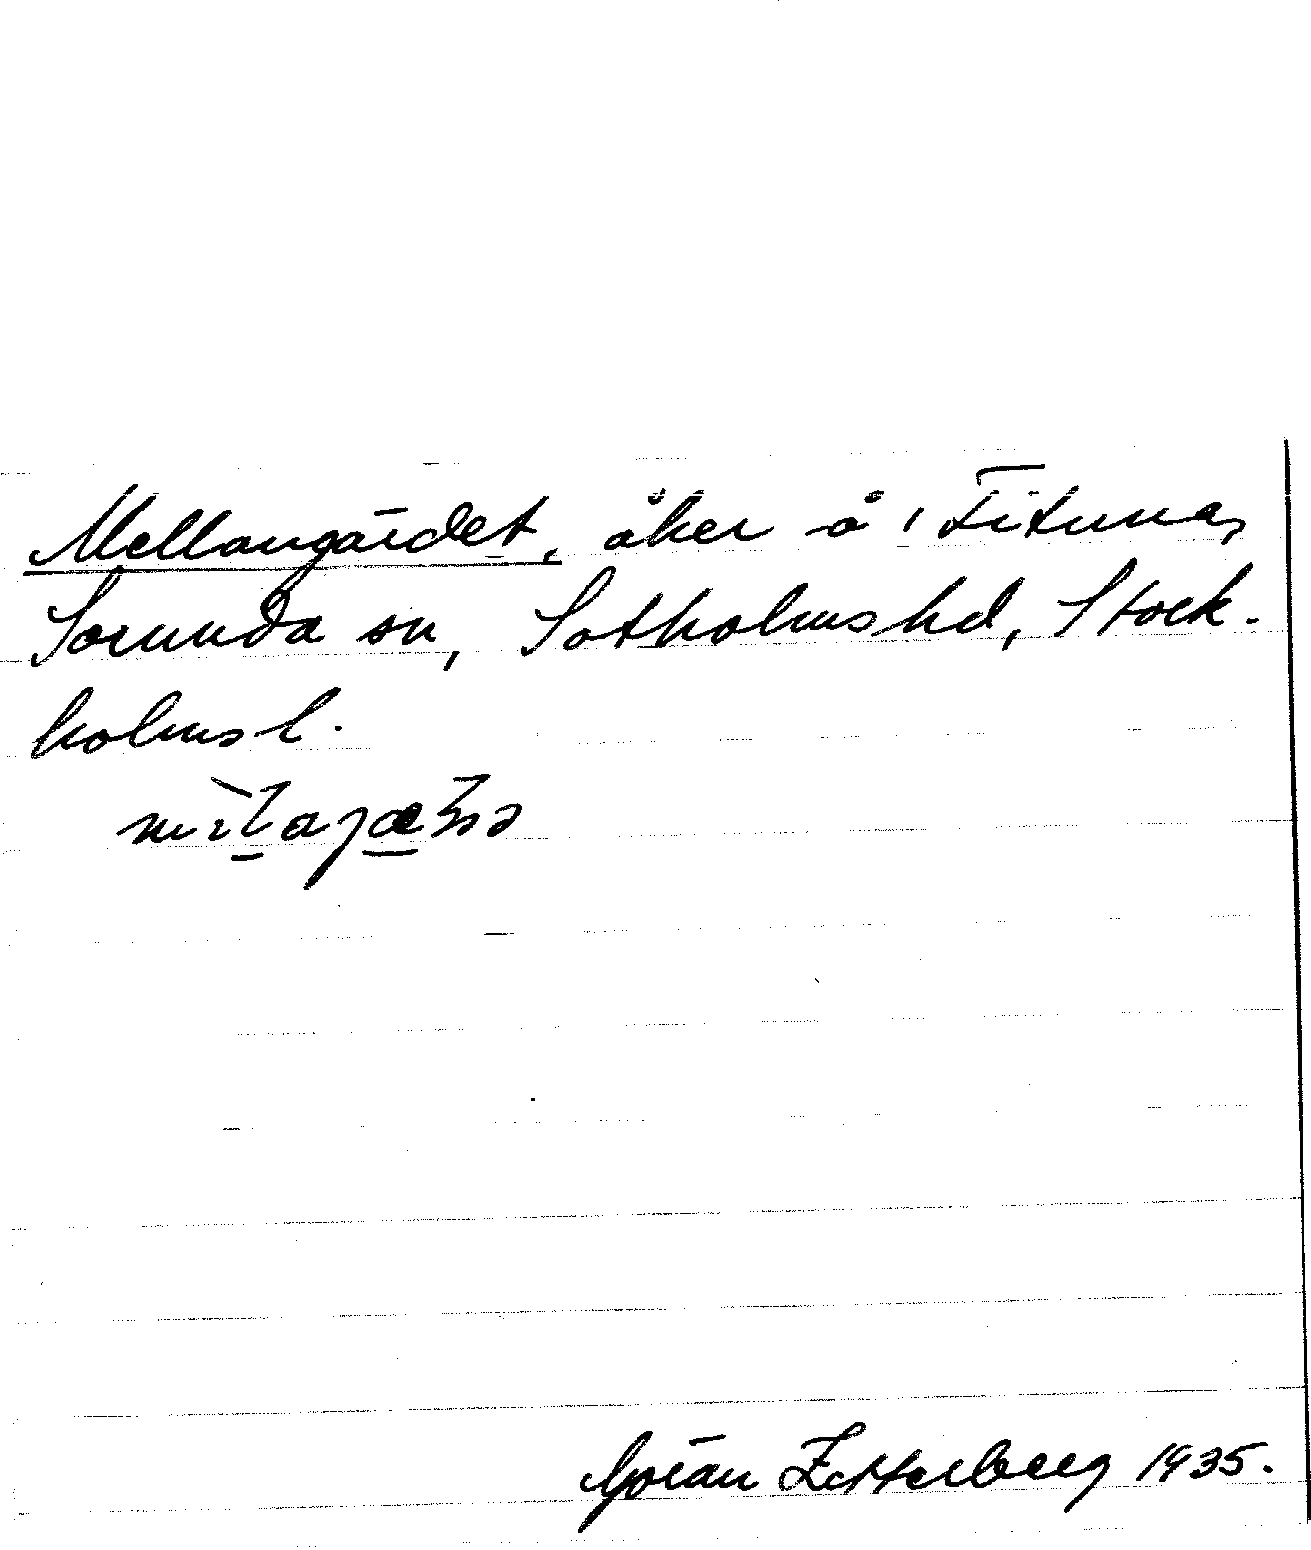 Mellangärdet, åker å Fituna,
Sorunda sn, Sotholms hd, Stock-
holms l.
Göran Zetterberg 1935.